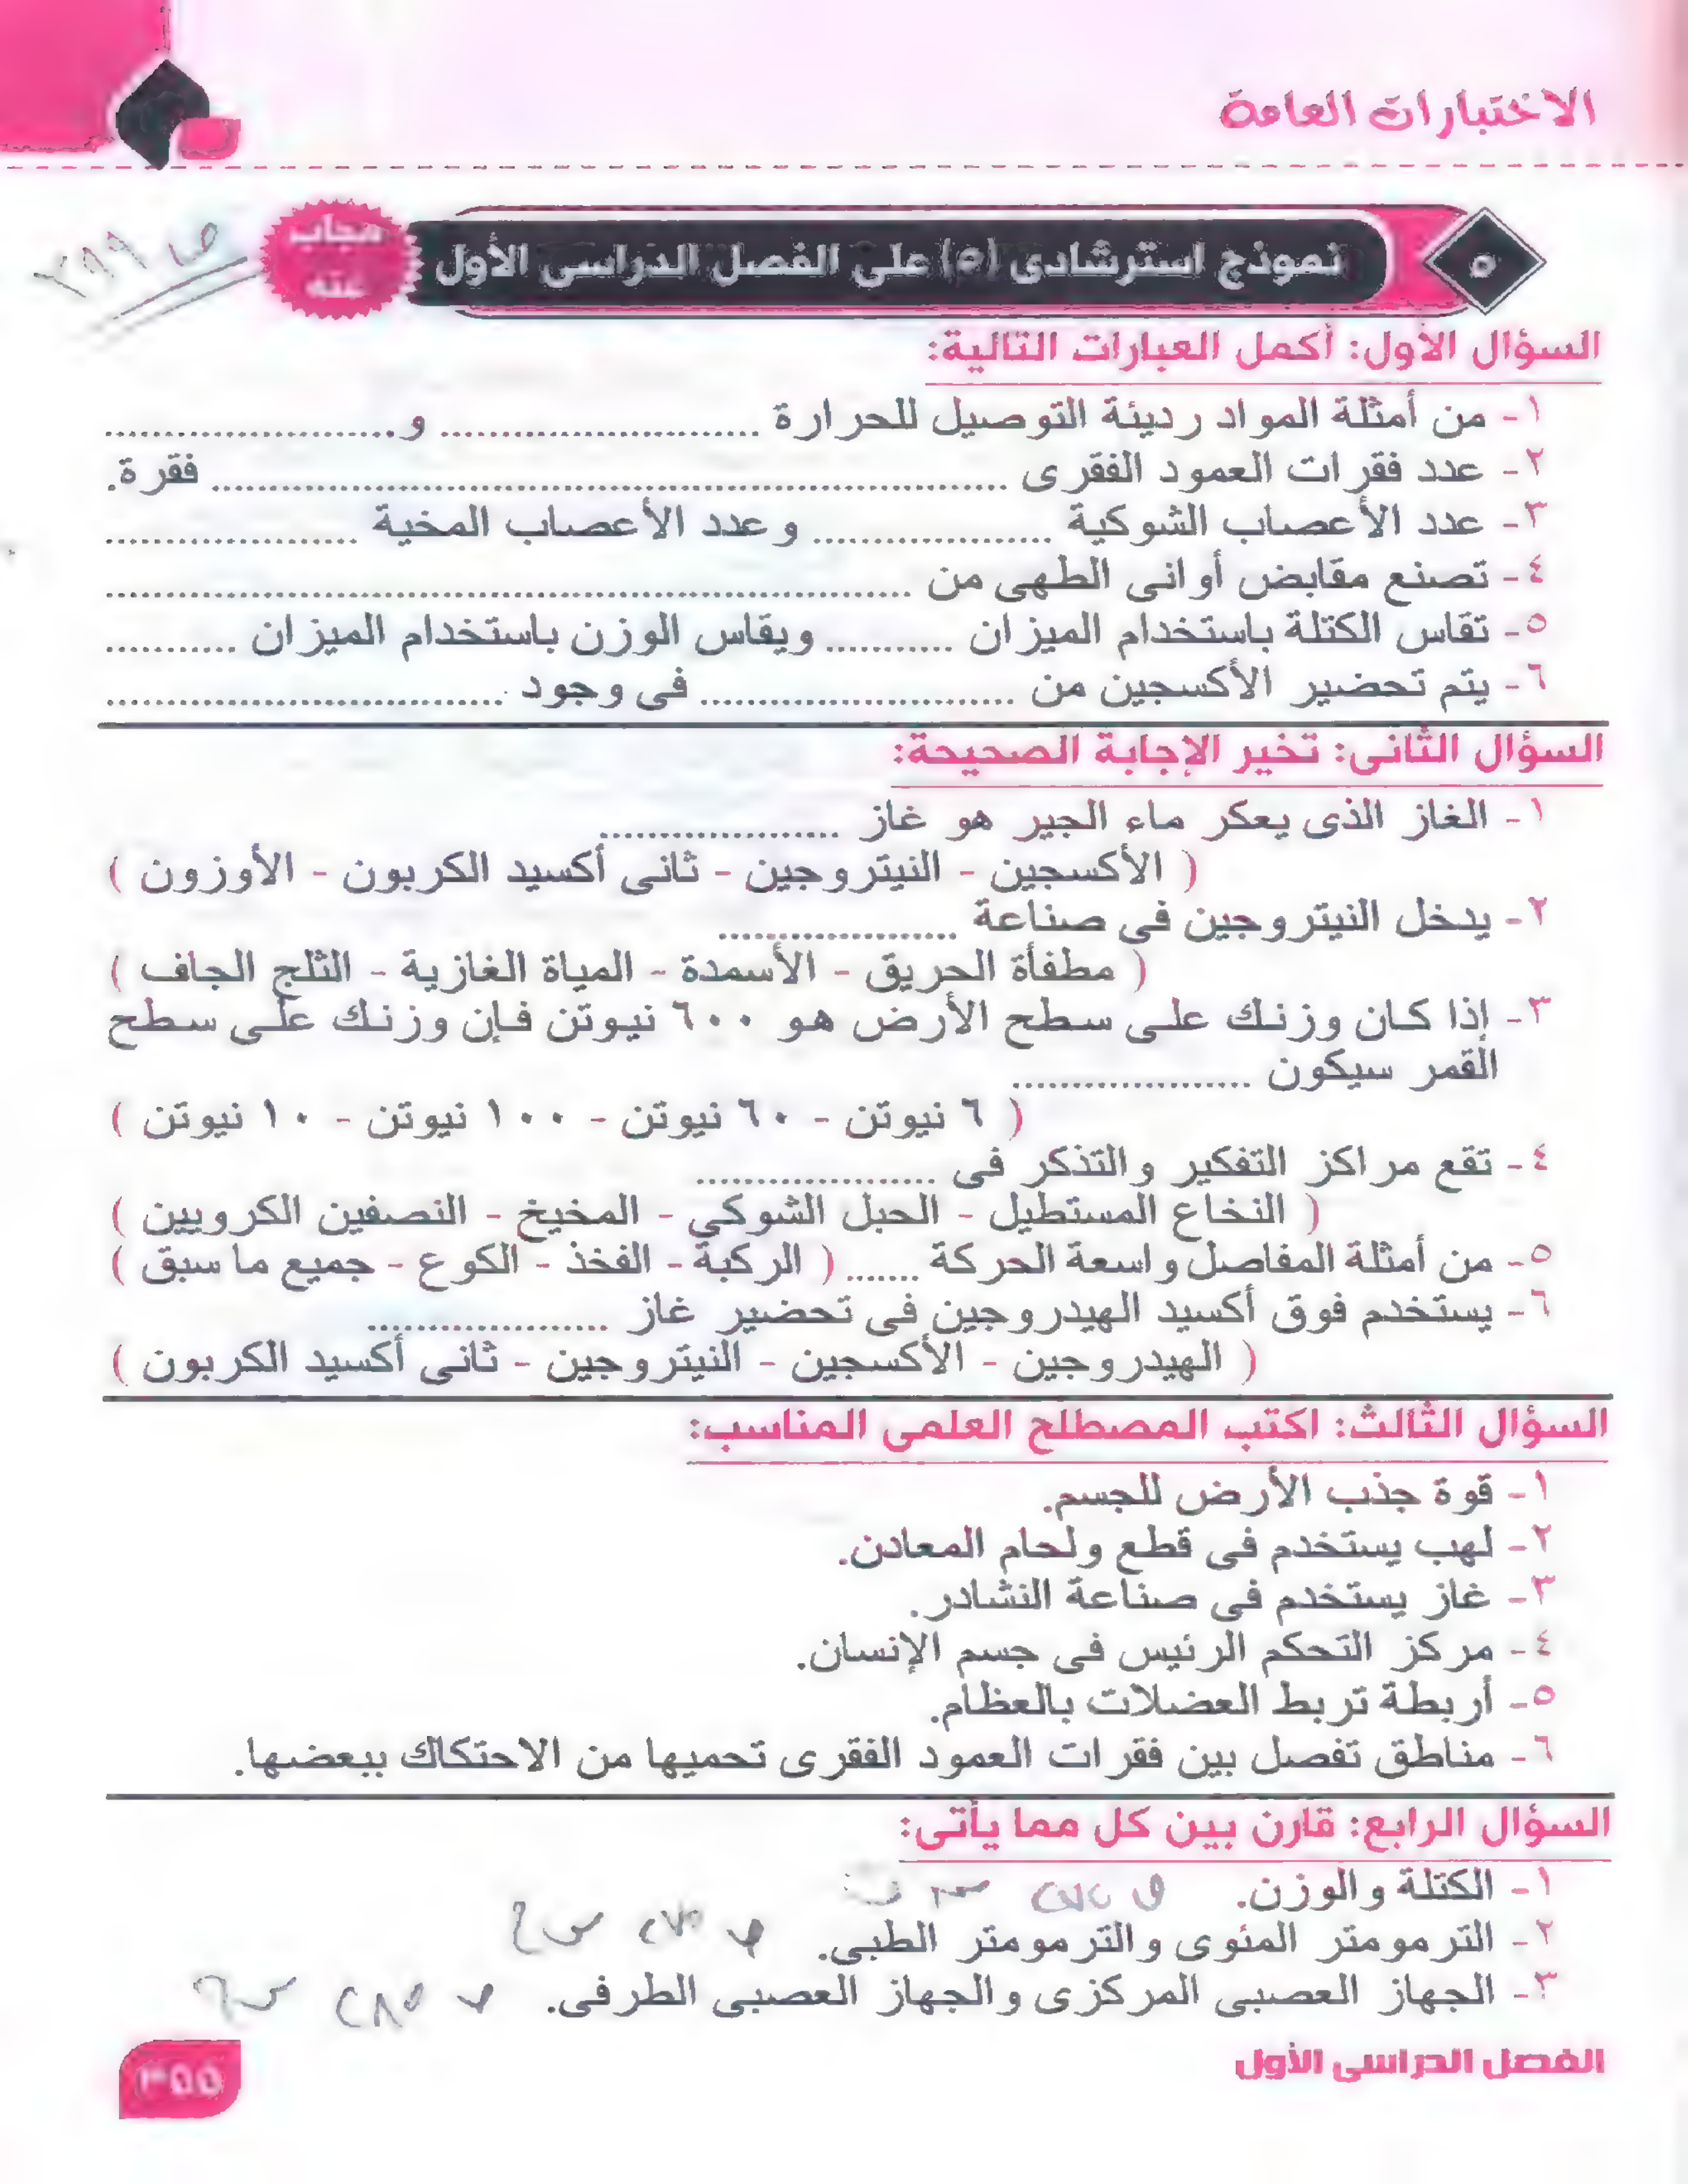 الاختبارات العامة
٥
نموذج استرشادى (٥) على الفصل الدراسى الأول
مجاب عنه
ص ٣٩٩
السؤال الأول: أكمل العبارات التالية:
١- من أمثلة المواد رديئة التوصيل للحرارة .......................... و........................
٢- عدد فقرات العمود الفقرى .................................................................. فقرة.
٣- عدد الأعصاب الشوكية .................... وعدد الأعصاب المخية .....................
٤- تصنع مقابض أوانى الطهى من ...................................................................
٥- تقاس الكتلة باستخدام الميزان ........... ويقاس الوزن باستخدام الميزان ...........
٦- يتم تحضير الأكسجين من .......................... فى وجود .................................
السؤال الثانى: تخير الإجابة الصحيحة:
١- الغاز الذى يعكر ماء الجير هو غاز ....................
( الأكسجين - النيتروجين - ثانى أكسيد الكربون - الأوزون )
٢- يدخل النيتروجين فى صناعة ....................
( مطفأة الحريق - الأسمدة - المياة الغازية - الثلج الجاف )
٣- إذا كان وزنك على سطح الأرض هو ٦٠٠ نيوتن فإن وزنك على سطح
القمر سيكون ....................
( ٦ نيوتن - ٦٠ نيوتن - ١٠٠ نيوتن - ١٠ نيوتن )
٤- تقع مراكز التفكير والتذكر فى ....................
( النخاع المستطيل - الحبل الشوكي - المخيخ - النصفين الكرويين )
٥- من أمثلة المفاصل واسعة الحركة ....... ( الركبة - الفخذ - الكوع - جميع ما سبق )
٦- يستخدم فوق أكسيد الهيدروجين فى تحضير غاز ....................
( الهيدروجين - الأكسجين - النيتروجين - ثانى أكسيد الكربون )
السؤال الثالث: اكتب المصطلح العلمى المناسب:
١- قوة جذب الأرض للجسم.
٢- لهب يستخدم فى قطع ولحام المعادن.
٣- غاز يستخدم فى صناعة النشادر.
٤- مركز التحكم الرئيس فى جسم الإنسان.
٥- أربطة تربط العضلات بالعظام.
٦- مناطق تفصل بين فقرات العمود الفقرى تحميها من الاحتكاك ببعضها.
السؤال الرابع: قارن بين كل مما يأتى:
١- الكتلة والوزن.
٢- الترمومتر المئوى والترمومتر الطبى.
٣- الجهاز العصبى المركزى والجهاز العصبى الطرفى.
الفصل الدراسى الأول
٣٥٥